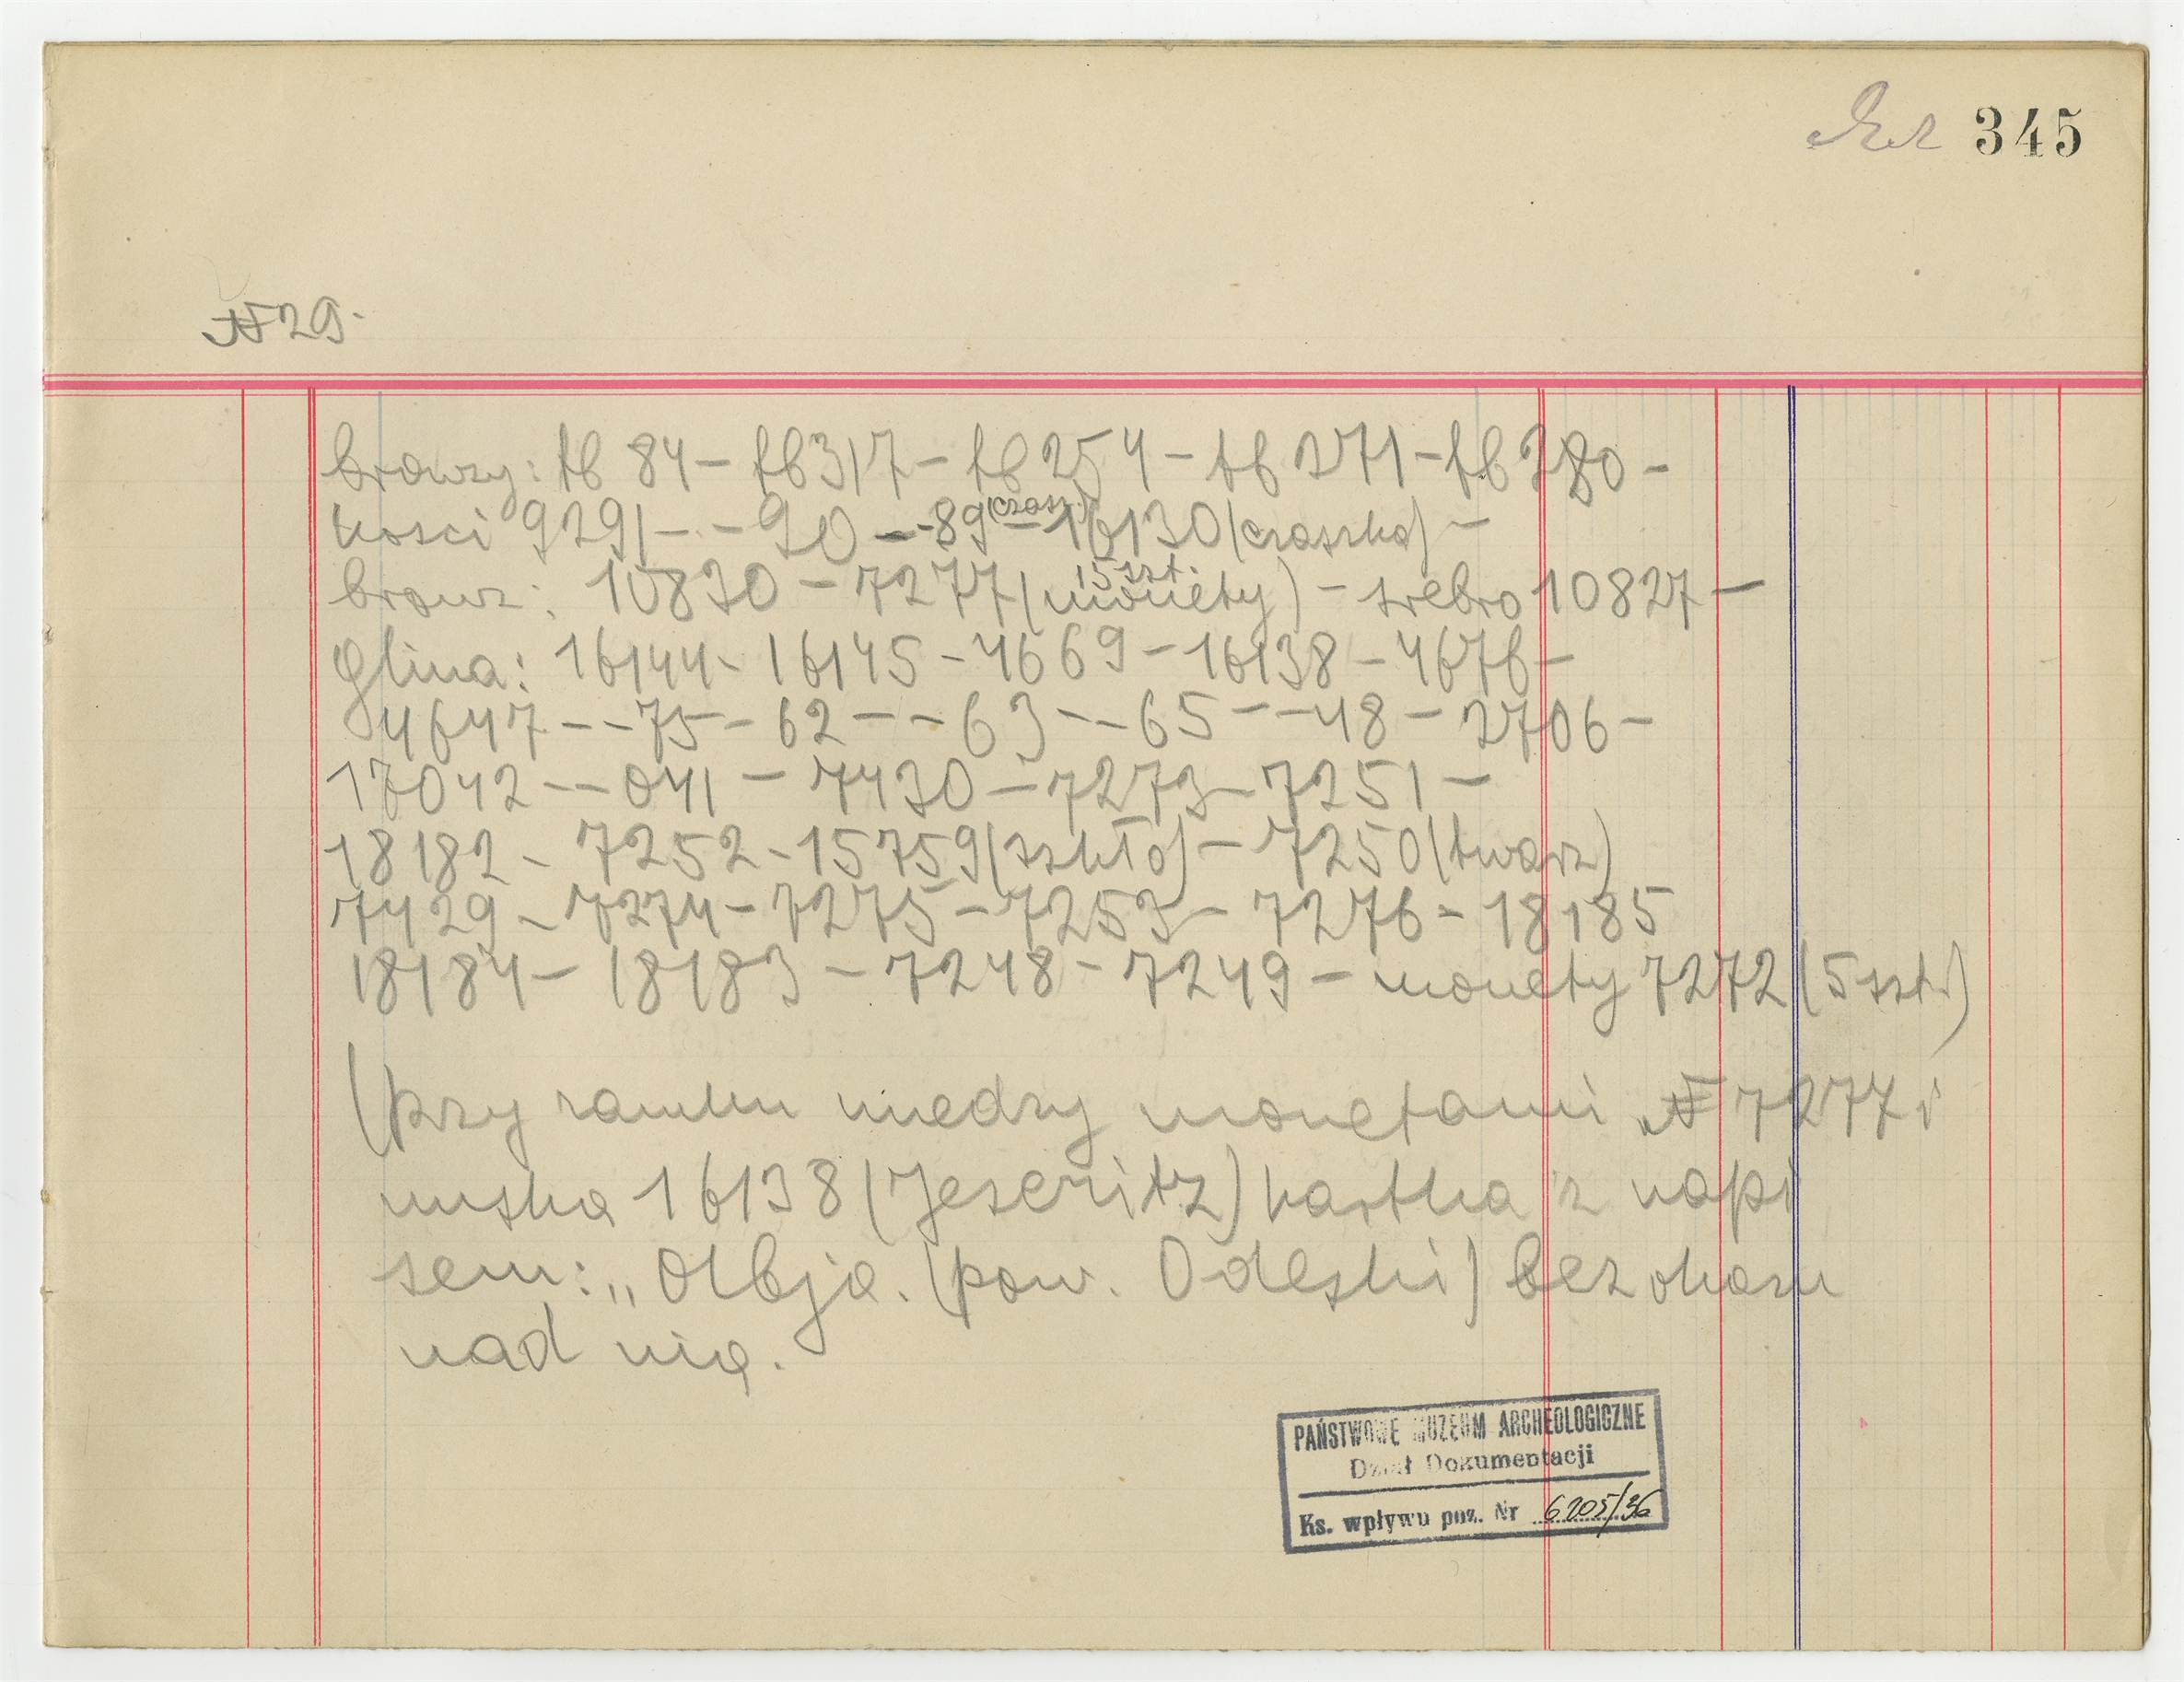 345
№ 29.
bronzy: tb 84 – tb 317 – tb 254 – tb 271 – tb 280 –
kości 9291 – – 90 – – 89 (czasz.) – 16130 (czaszka) –
bronz: 10830 – 7277 (monety 15 szt.) – srebro 10827 –
glina: 16144 – 16145 – 4669 – 16138 – 4676 –
4647 – – 75 – 62 – – 63 – – 65 – – 48 – 2706 –
17042 – – 041 – 7430 – 7273 – 7251 –
18182 – 7252 – 15759 (szkło) – 7250 (twarz)
7429 – 7274 – 7275 – 7253 – 7276 – 18185
18184 – 18183 – 7248 – 7249 – monety 7272 (5 szt.)
(przy zamku miedzy monetami № 7277 i
miska 16138 (Jeseritz) kartka z napi
sem: „Olbja. (pow. Odeski) bez okazu
nad nią.
PAŃSTWOWE MUZEUM ARCHEOLOGICZNE
Dział Dokumentacji
Ks. wpływu poz. Nr 6205/36